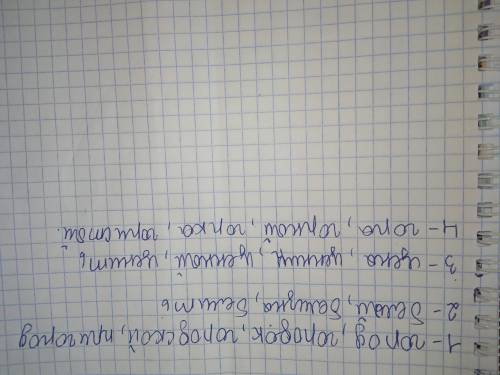 1 - город, городок, городской, пригород
2 - белый, белизна, белить
3 - цена, ценник, ценной, ценить
4 - гора, горной, горка, гористой.